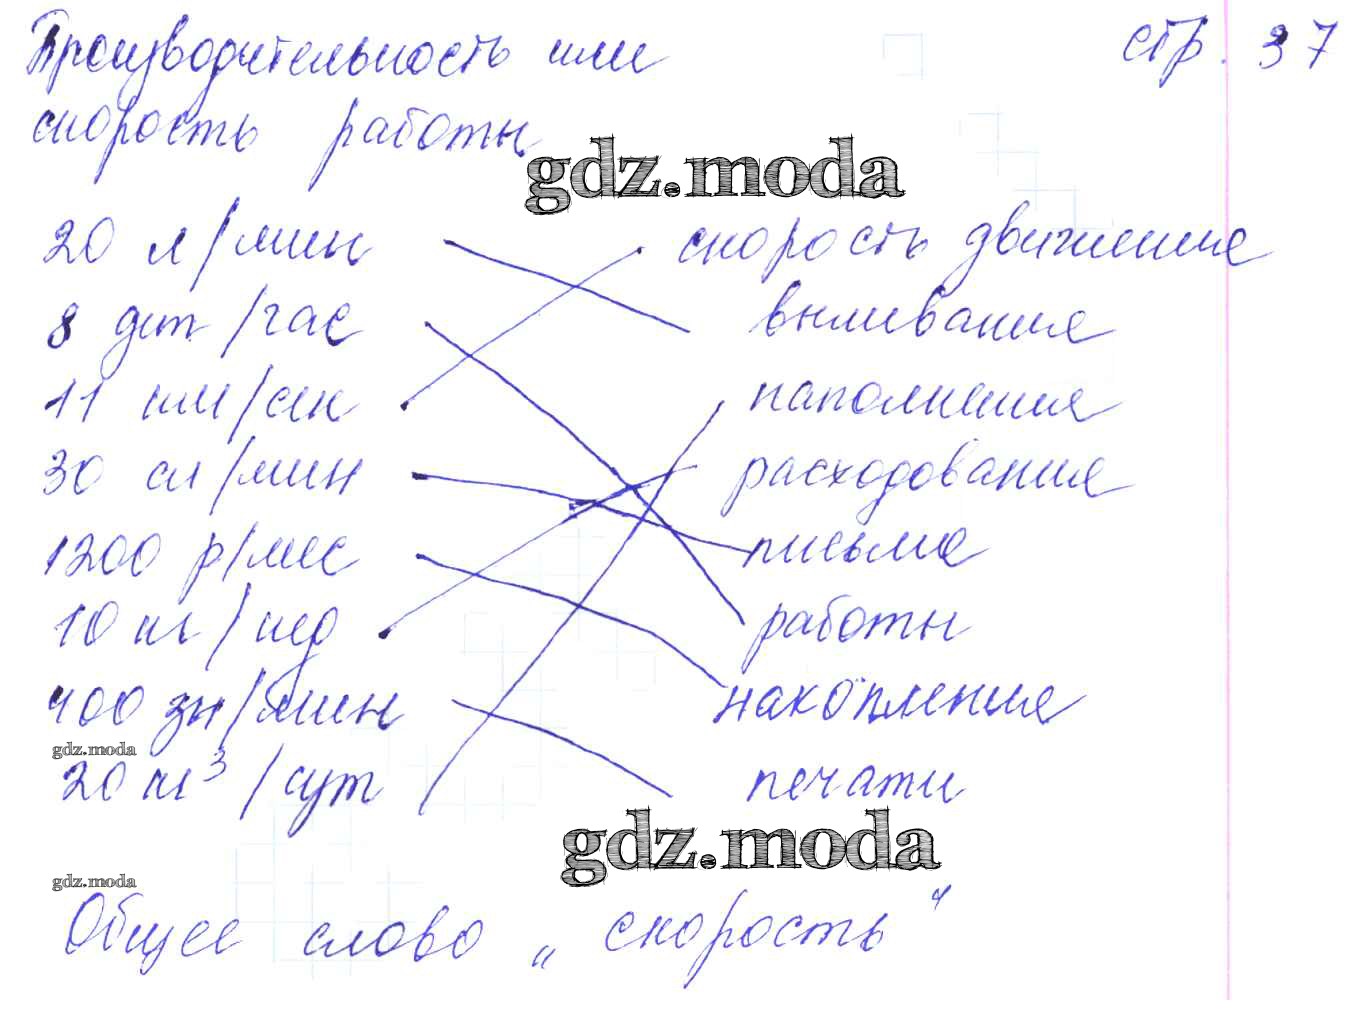 Производительность или стр. 37
скорость работы
gdz.moda
20 л/мин скорость движения
8 дет/час выливания
11 км/сек наполнения
30 сл/мин расходования
1200 р/мес письма
10 кг/нед работы
400 зн/мин накопления
gdz.moda
20 м³/сут печати
gdz.moda
gdz.moda
Общее слово „скорость“